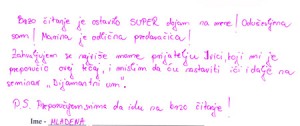 Brzo čitanje je ostavilo SUPER dojam na mene! Oduševljena
sam! Marina je odlična predavačica!
Zahvaljujem se najviše mome prijatelju Ivici, koji mi je
preporučio ovaj tečaj, i mislim da ću nastaviti ići i dalje na
seminar "Dijamantni um".
P.S. Preporučujem svima da idu na brzo čitanje!
Ime - MLADENA